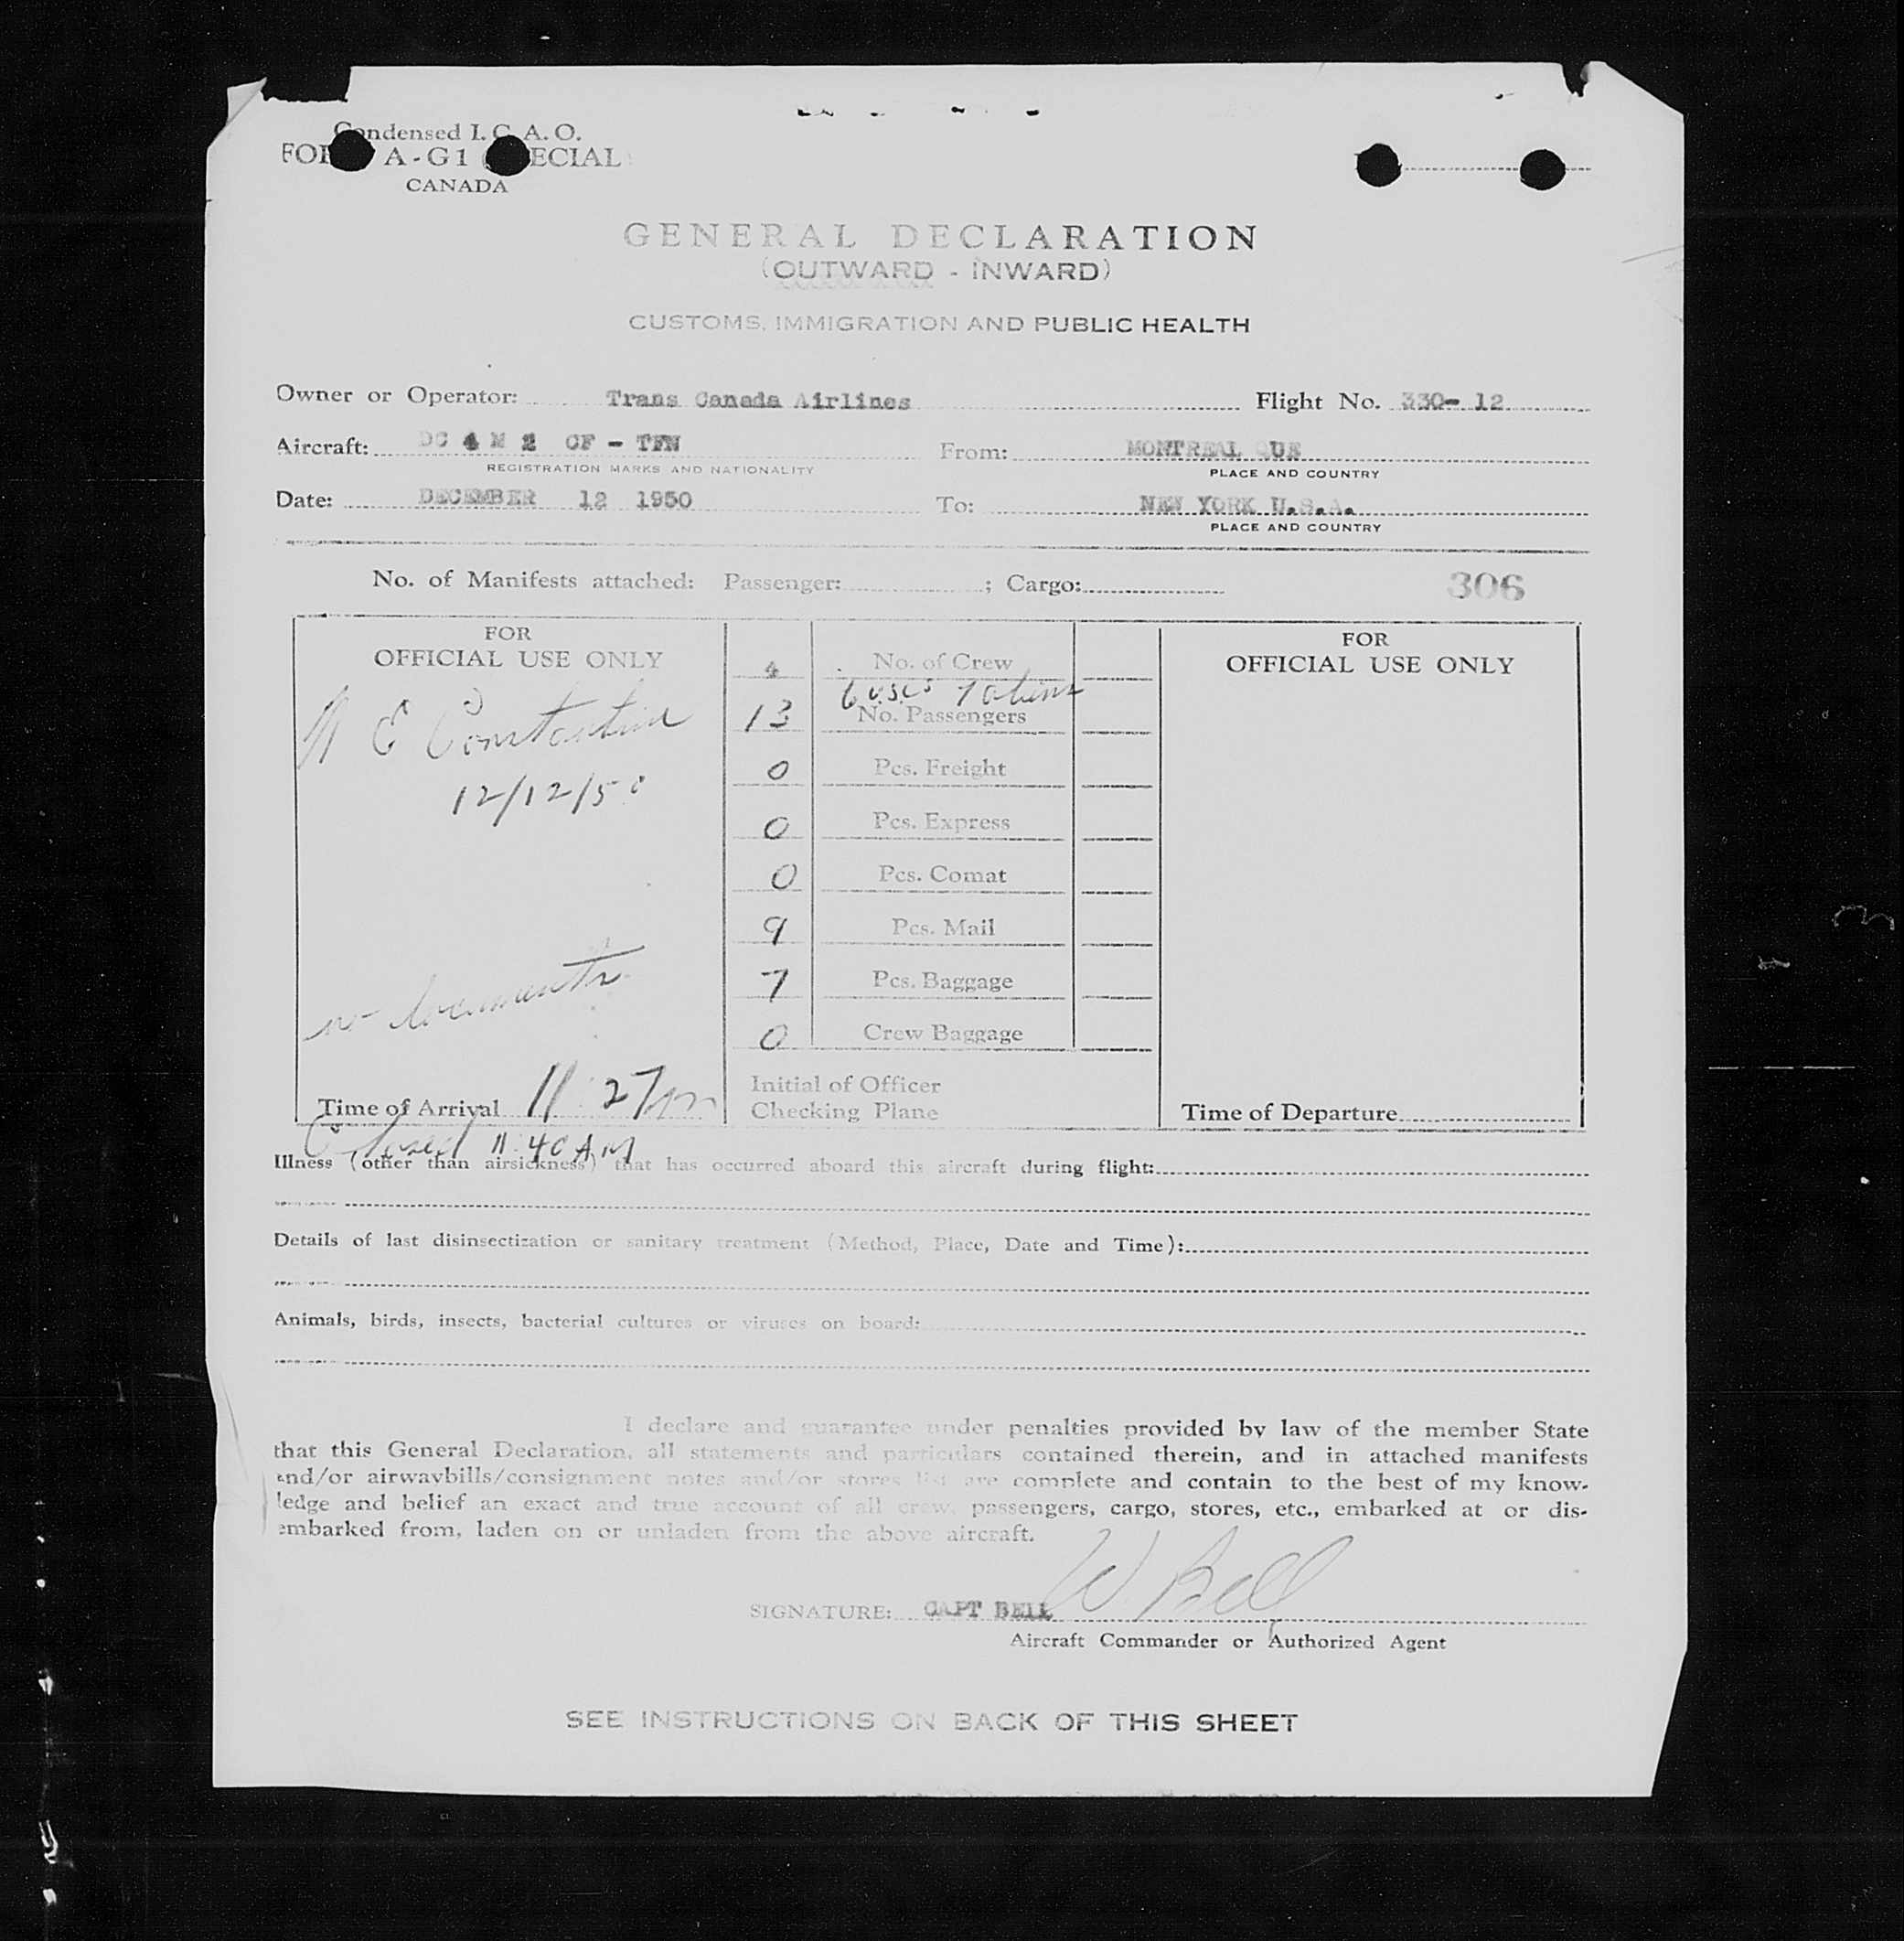 Condensed I. C. A. O.
A-G1
CANADA
GENERAL DECLARATION
(OUTWARD - INWARD)
CUSTOMS, IMMIGRATION AND PUBLIC HEALTH
Owner or Operator: Trans Canada Airlines Flight No. 330- 12
Aircraft: DC 4 M 2 CF - TFN From: MONTREAL QUE
REGISTRATION MARKS AND NATIONALITY PLACE AND COUNTRY
Date: DECEMBER 12 1950 To: NEW YORK U.S.A.
PLACE AND COUNTRY
No. of Manifests attached: Passenger: ; Cargo: 306
FOR
OFFICIAL USE ONLY
E Constantine
12/12/50
no documents
Time of Arrival 11:27am
Closed 11:40 AM
4 No. of Crew
6 USCs 7 aliens
13 No. Passengers
0 Pcs. Freight
0 Pcs. Express
0 Pcs. Comat
9 Pcs. Mail
7 Pcs. Baggage
0 Crew Baggage
Initial of Officer
Checking Plane
FOR
OFFICIAL USE ONLY
Time of Departure
Illness (other than airsickness) that has occurred aboard this aircraft during flight:
Details of last disinsectization or sanitary treatment (Method, Place, Date and Time):
Animals, birds, insects, bacterial cultures or viruses on board:
I declare and guarantee under penalties provided by law of the member State
that this General Declaration, all statements and particulars contained therein, and in attached manifests
and/or airwaybills/consignment notes and/or stores list are complete and contain to the best of my know-
ledge and belief an exact and true account of all crew, passengers, cargo, stores, etc., embarked at or dis-
embarked from, laden on or unladen from the above aircraft.
SIGNATURE: CAPT BELL W Bell
Aircraft Commander or Authorized Agent
SEE INSTRUCTIONS ON BACK OF THIS SHEET